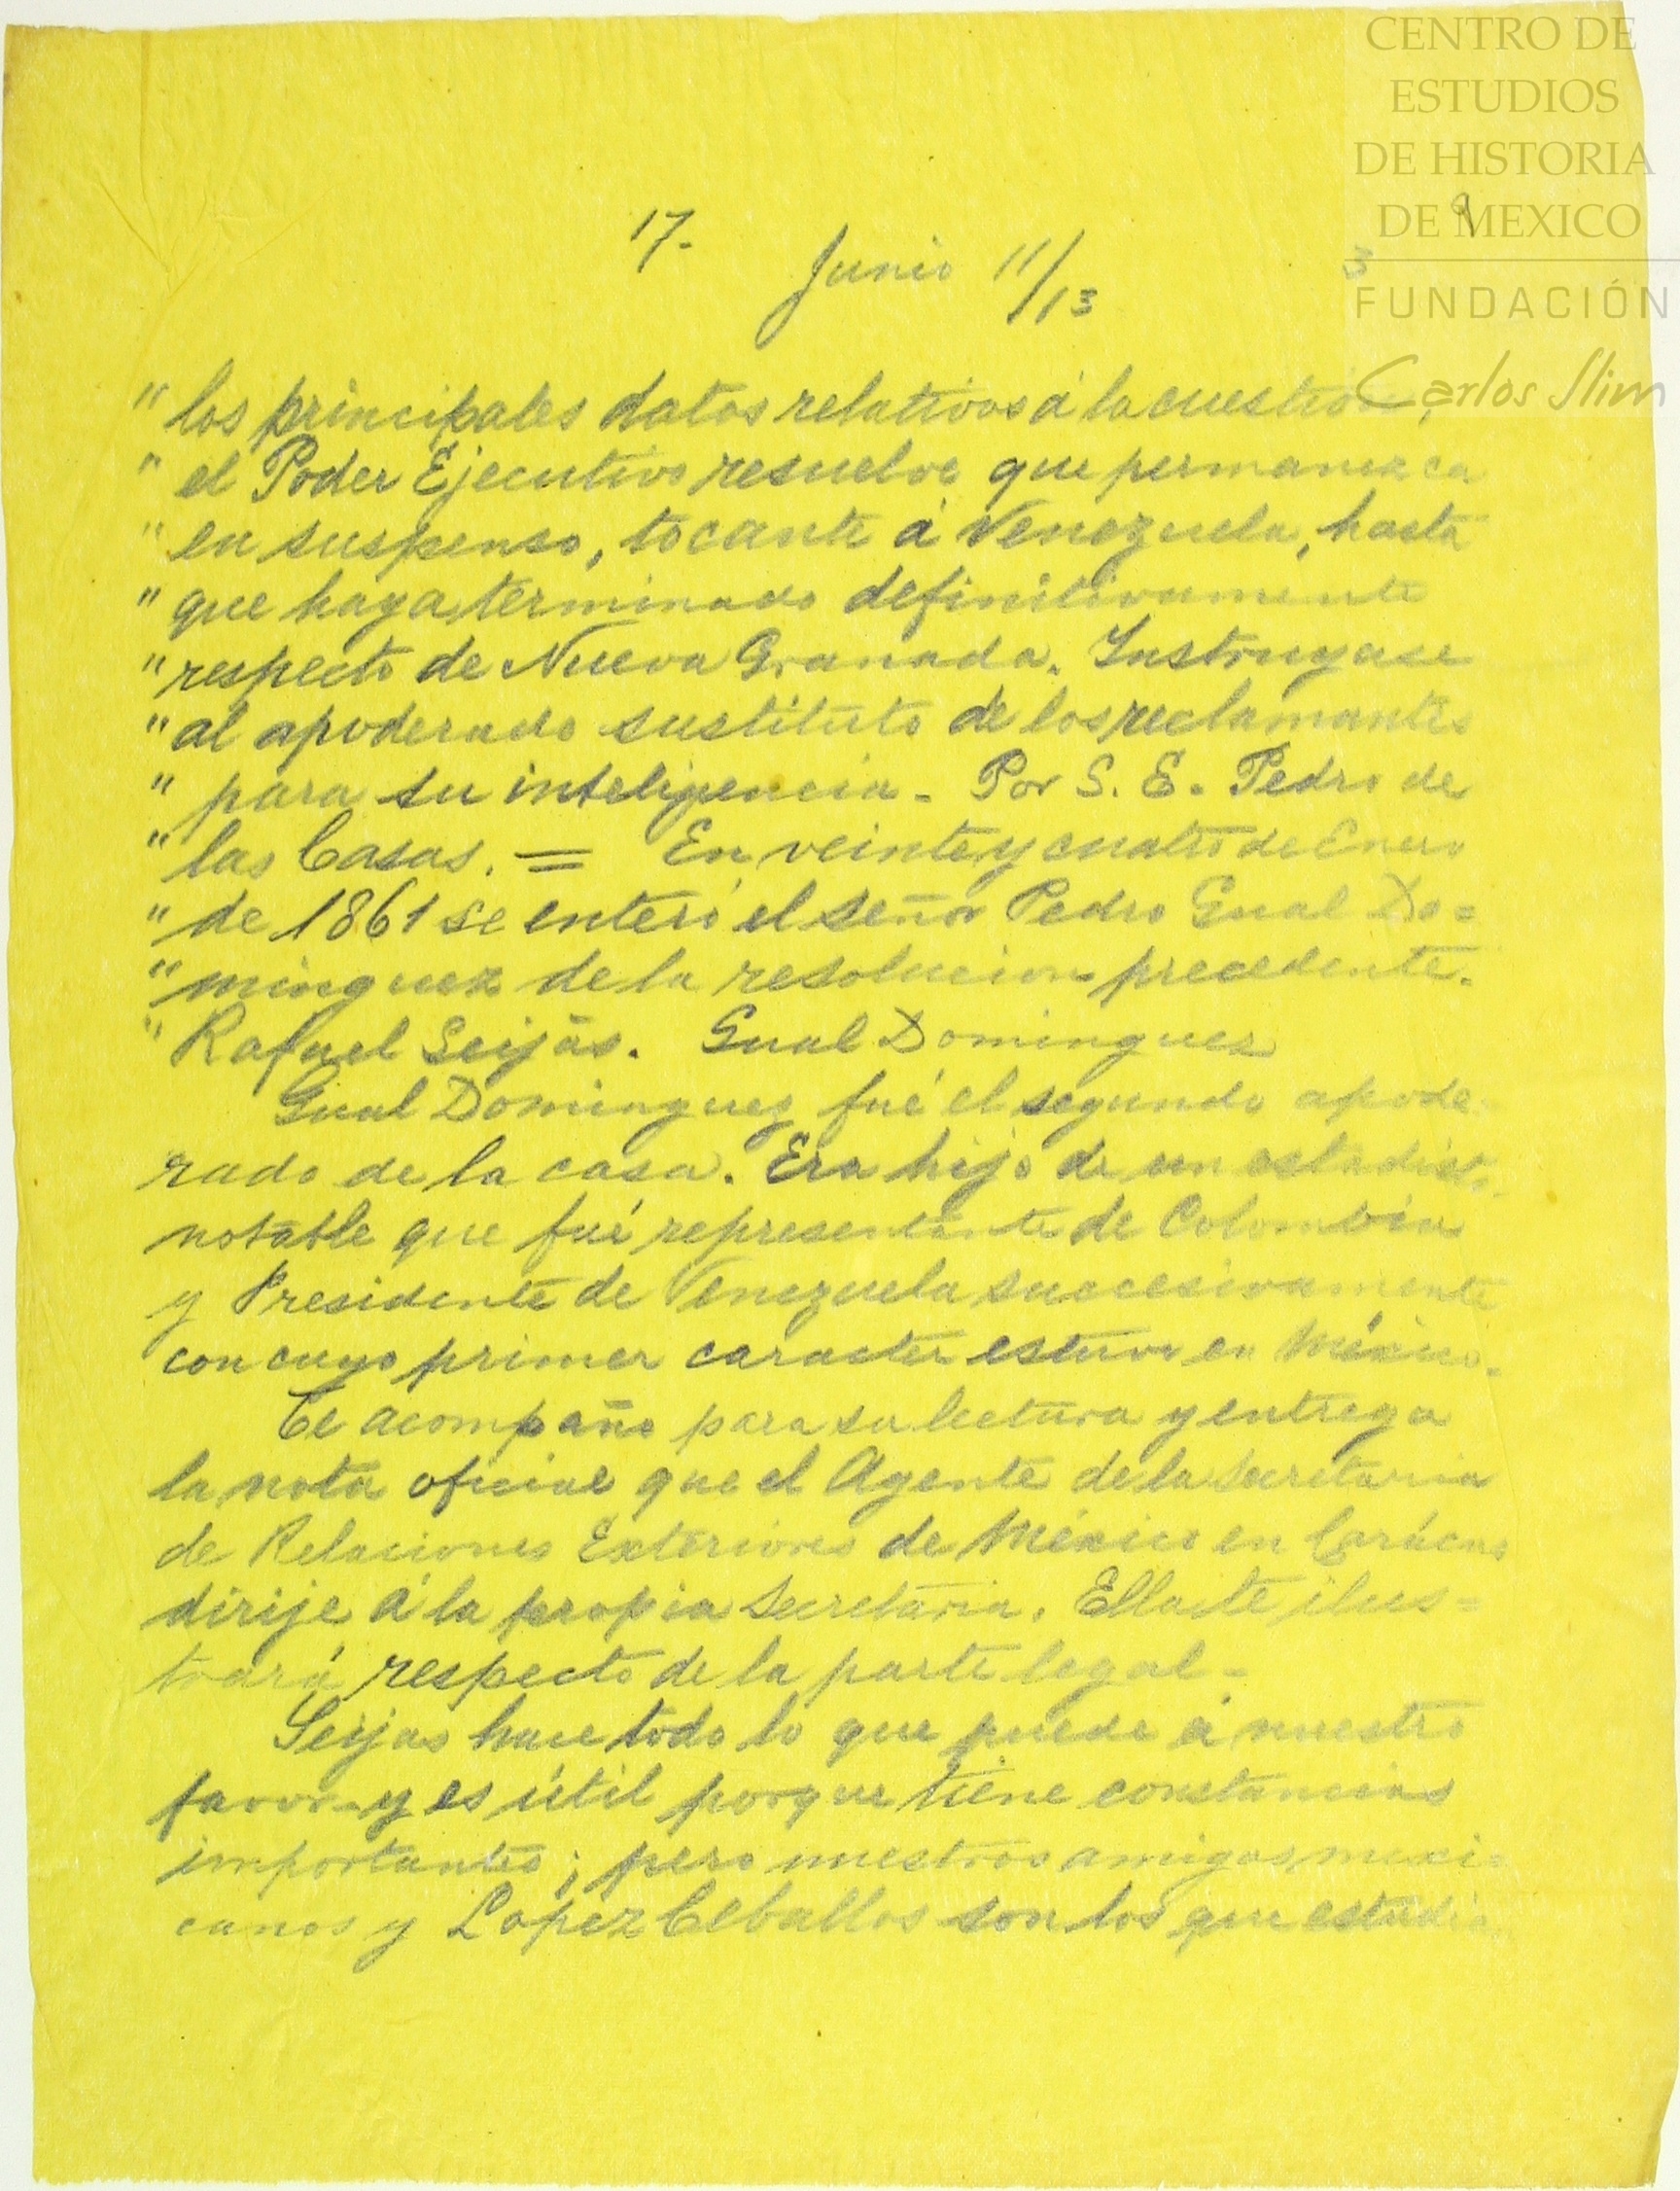 CENTRO DE
ESTUDIOS
DE HISTORIA
DE MEXICO
FUNDACIÓN
Carlos Slim
9
3
17.
Junio 11/13
" los principales datos relativos á la cuestion,
" el Poder Ejecutivo resuelve que permanezca
" en suspenso, tocante á Venezuela, hasta
" que haya terminado definitivamente
" respecto de Nueva Granada. Instruyase
" al apoderado sustituto de los reclamantes
" para su inteligencia - Por S. E. Pedro de
" las Casas. = En veinte y cuatro de Enero
" de 1861 se enteró el señor Pedro Gual Do=
" minguez de la resolucion precedente.
" Rafael Seijas. Gual Dominguez
Gual Dominguez fué el segundo apode-
rado de la casa. Era hijo de un estadista
notable que fué representante de Colombia
y Presidente de Venezuela succesivamente
con cuyo primer caracter estuvo en México.
Te acompaño para su lectura y entrega
la nota oficial que el Agente de la Secretaria
de Relaciones Exteriores de México en Carácas
dirije á la propia Secretaria. Ella te ilus=
trará respecto de la parte legal -
Seijas hace todo lo que puede á nuestro
favor y es útil porque tiene constancias
importantes; pero nuestros amigos mexi-
canos y Lopez Ceballos son los que estudia